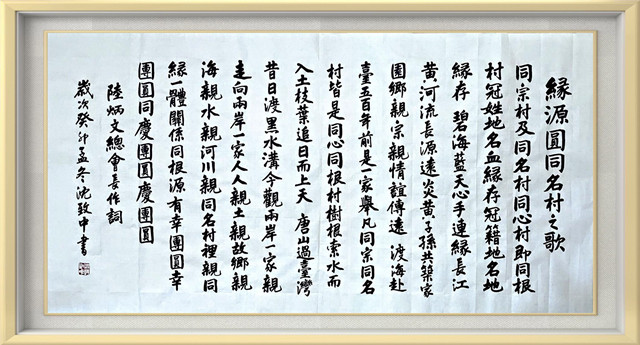 緣源圓同名村之歌
同宗村及同名村同心村即同根
村冠姓地名血緣存冠籍地名地
緣存 碧海藍天心手連緣長江
黃河流長源遠炎黃子孫共築家
園鄉親宗親情誼傳遠 渡海赴
臺五百年前是一家舉凡同宗同名
村皆是同心同根村樹根索水而
入土枝葉追日而上天 唐山過臺灣
昔日渡黑水溝今觀兩岸一家親
走向兩岸一家人人親土親故鄉親
海親水親河川親同名村裡親同
緣一體關係同根源有幸團圓幸
團圓同慶團圓慶團圓
陸炳文總會長作詞
歲次癸卯孟冬沈致中書